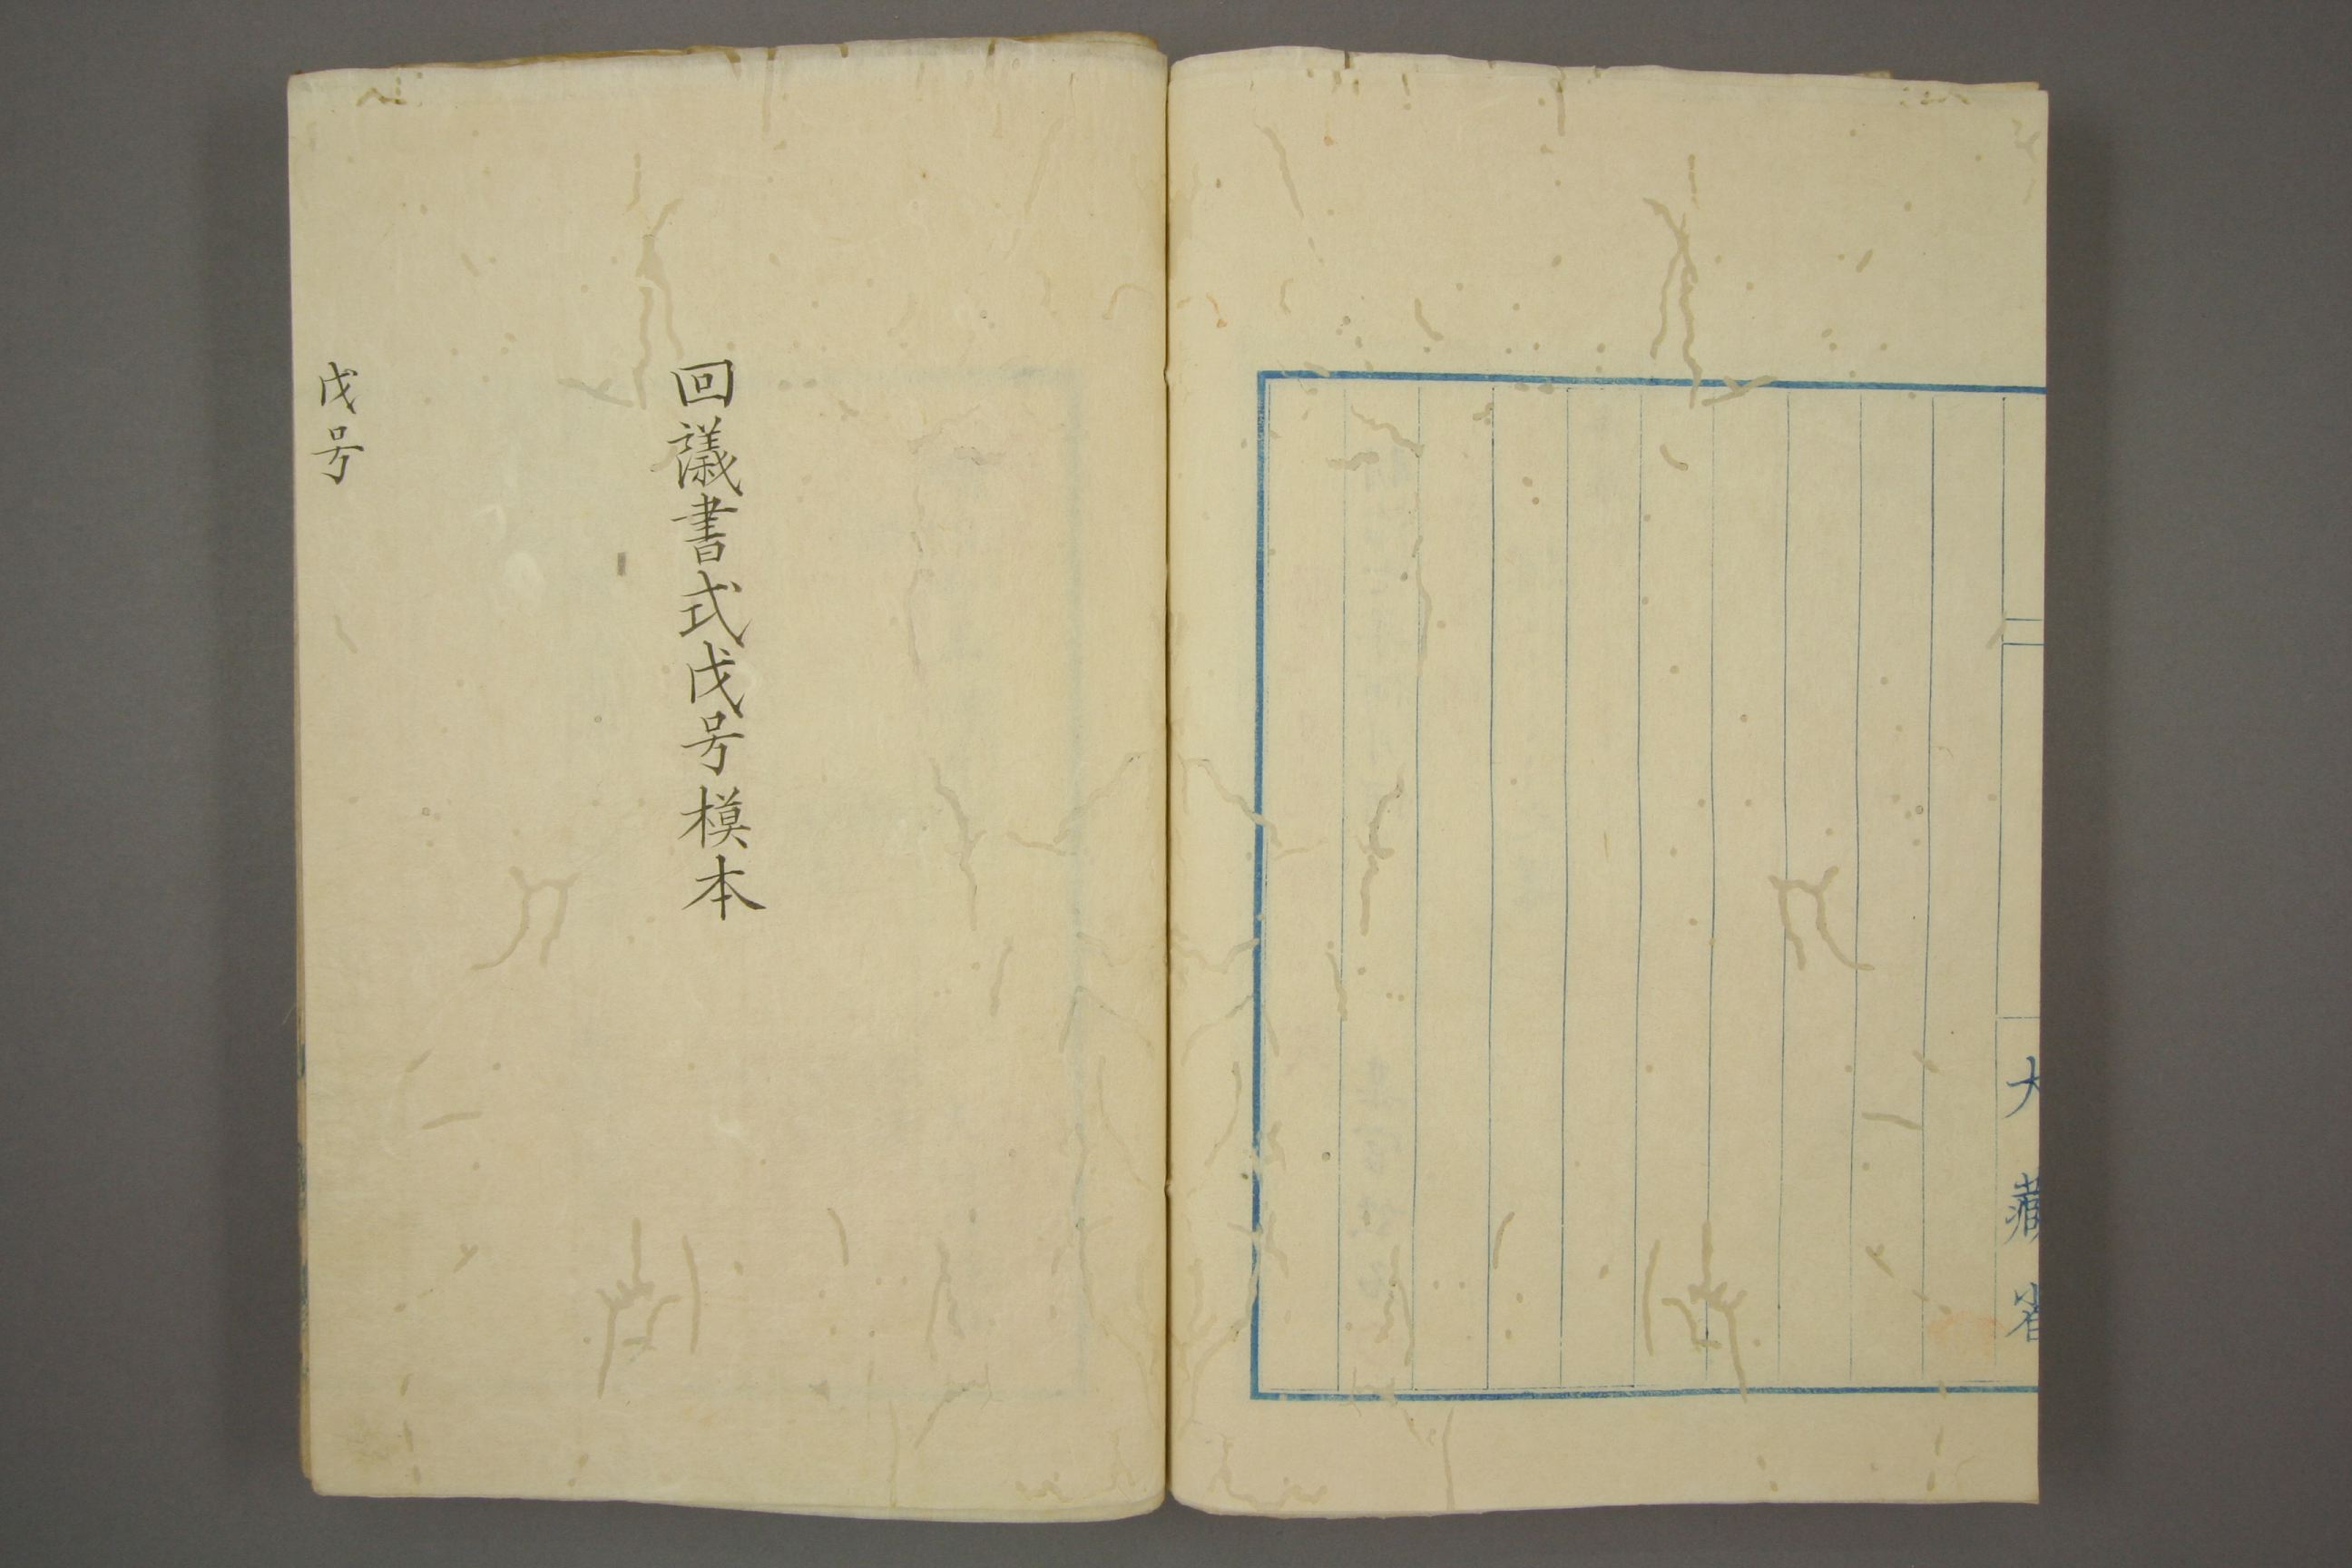 大藏省
回議書式戊号模本
戊号